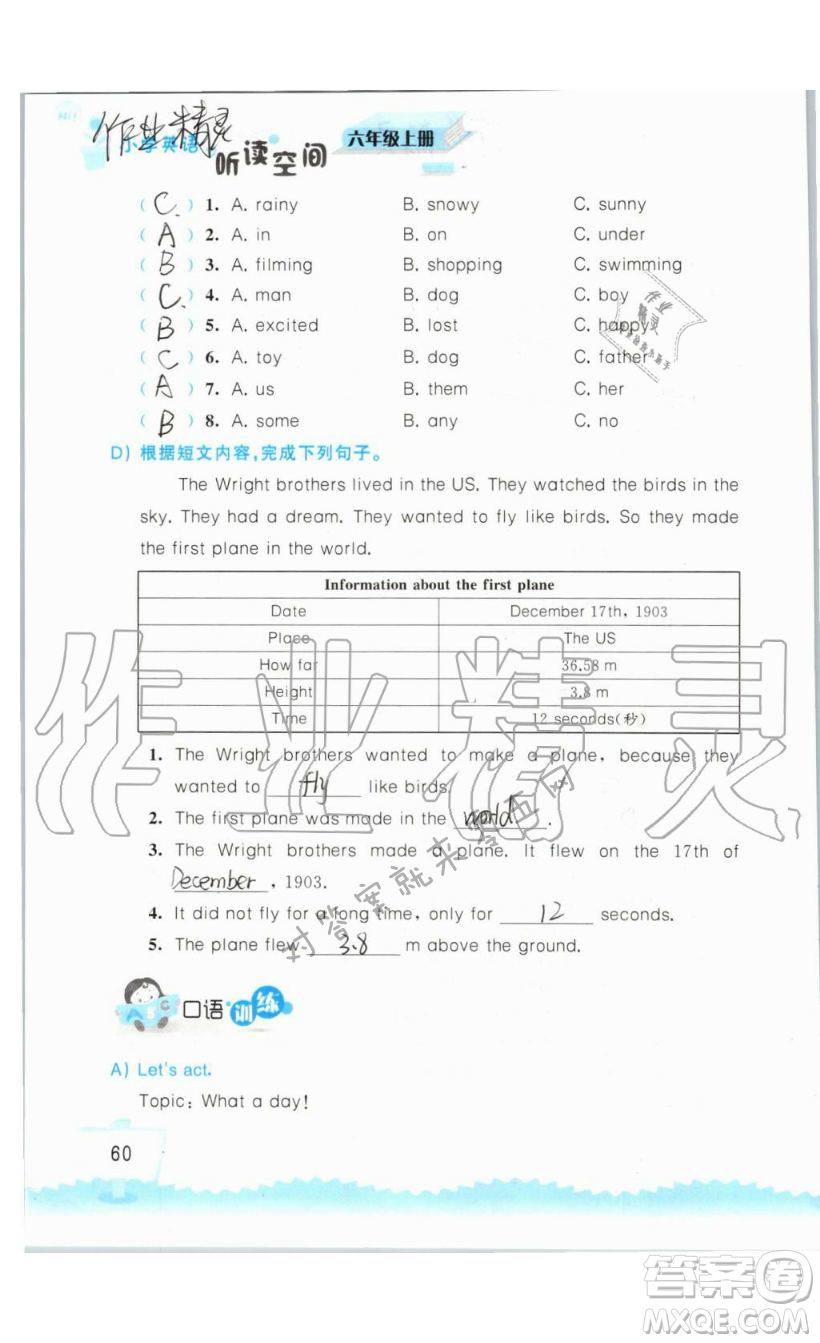 作业精灵
小学英语
听读空间
六年级上册
( C ) 1. A. rainy B. snowy C. sunny
( A ) 2. A. in B. on C. under
( B ) 3. A. filming B. shopping C. swimming
( C ) 4. A. man B. dog C. boy
( B ) 5. A. excited B. lost C. happy
( C ) 6. A. toy B. dog C. father
( A ) 7. A. us B. them C. her
( B ) 8. A. some B. any C. no
作业
精灵
D) 根据短文内容,完成下列句子。
The Wright brothers lived in the US. They watched the birds in the
sky. They had a dream. They wanted to fly like birds. So they made
the first plane in the world.
Information about the first plane
Date December 17th, 1903
Place The US
How far 36.58 m
Height 3.8 m
Time 12 seconds(秒)
作业精灵
1. The Wright brothers wanted to make a plane, because they
wanted to fly like birds.
2. The first plane was made in the world.
3. The Wright brothers made a plane. It flew on the 17th of
December, 1903.
4. It did not fly for a long time, only for 12 seconds.
5. The plane flew 3.8 m above the ground.
对答案就来零五网
A B C
口语训练
A) Let's act.
Topic: What a day!
60
答案卷
MXQE.COM